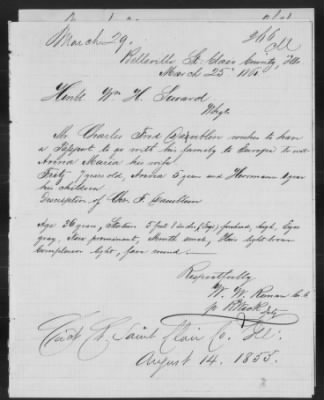 March 29.
266 Ill
Belleville St. Clair County, Ills
March 25th 186
Honbl Wm H. Seward
Mr. Charles Fred Daeublin wishes to have
a Passport to go with his family to Europe to wit
Anna Maria his wife
Fritz 7 years old, Amelia 5 years and Herrmann 1 year
his children
Description of Chs. F. Daeublin
Age 36 years, Stature 5 feet 8 inch, forehead, high, Eyes
gray, Nose prominent, Mouth small, Hair light brown
Complexion light, face round
Respectfully
W. W. Roman C. C
pr Dpty
Cir. Ct. Saint Clair Co. Ill.
August 14. 1855.